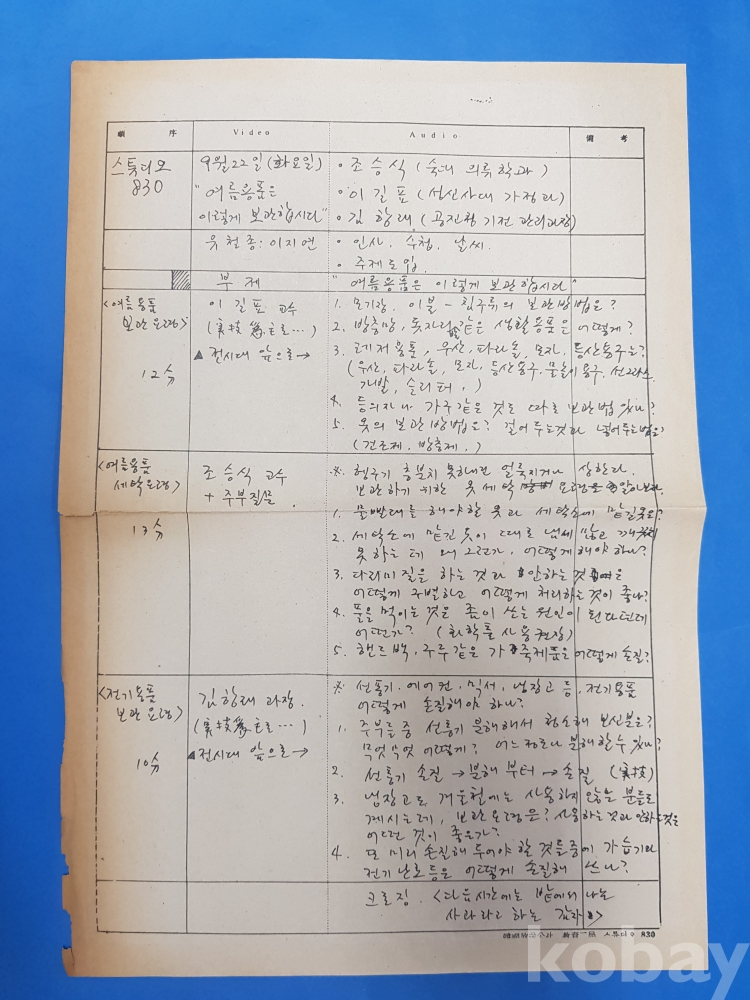 順 序 Video Audio 備 考
스튜디오
830
9월 22일 (화요일)
"여름용품은
이렇게 보관합시다"
· 조승식 (숙대 의류학과)
· 이길표 (성신사대 가정과)
· 김항래 (공진청 기전 관리과장)
유철종 : 이지연
· 인사. 수첩. 날씨.
· 주제도입.
부 제
"여름용품은 이렇게 보관합시다"
<여름용품
보관요령>
12分
이길표 교수
(実技 爲主로 …)
▲ 전시대 앞으로 →
1. 모기장, 이불 - 침구류의 보관방법은?
2. 방충망, 돗자리 같은 생활용품은 어떻게?
3. 레저용품, 우산, 파라솔, 모자, 등산용구는?
(우산, 파라솔, 모자, 등산용구, 물놀이용구, 선그라스
가방, 슬리퍼.)
4. 등의자나 가구같은 것도 따로 보관법 있나?
5. 옷의 보관방법은? 걸어두는것과 넣어두는법은?
(건조제. 방충제.)
<여름용품
세탁요령>
13分
조승식 교수
+ 주부질문
※. 헹구기 충분치 못하면 얼룩지거나 상한다.
보관하기 위한 옷 세탁 요령을 알아보자.
1. 물빨래를 해야할 옷과 세탁소에 맡길옷은?
2. 세탁소에 맡긴 옷이 때로 냄새 많고 깨끗지
못하는데 왜 그런가, 어떻게 해야하나?
3. 다리미질을 하는 것과 안하는 것은
어떻게 구별하고 어떻게 처리하는 것이 좋나?
4. 풀을 먹이는 것은 좀이 쓰는 원인이 된다던데
어떤가? (화학풀 사용권장)
5. 핸드백, 구두 같은 가죽제품은 어떻게 손질?
<전기용품
보관요령>
10分
김항래 과장.
(実技爲主로 …)
▲ 전시대 앞으로 →
※ 선풍기. 에어컨. 믹서. 냉장고 등. 전기용품
어떻게 손질해야 하나?
1. 주부들 중 선풍기 분해해서 청소해 보신분은?
무엇무엇 어떻게? 어느정도나 분해할 수 있나?
2. 선풍기 손질 → 분해부터 → 손질 (実技)
3. 냉장고도 겨울철에는 사용하지 않는 분들도
계시는데, 보관요령은? 사용하는것과 안하는것은
어떤 것이 좋은가?
4. 또 미리 손질해 두어야 할 것들중에 가습기와
전기난로 등은 어떻게 손질해 쓰나?
크로징. <다음시간에는 밭에서 나는
사과라고 하는 감자>
스튜디오 830
kobay